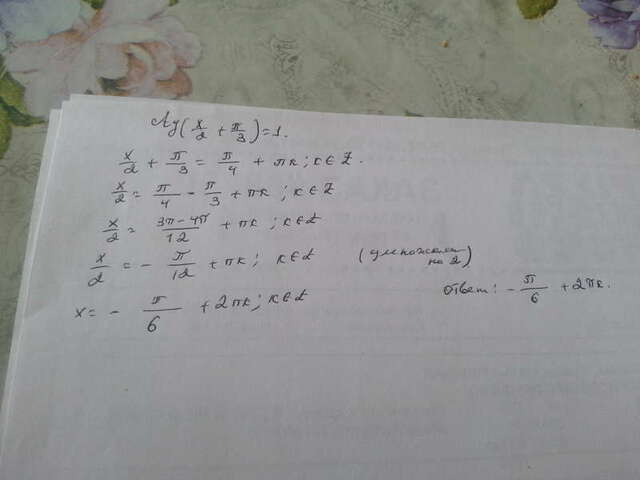 tg(x/2 + π/3) = 1.
x/2 + π/3 = π/4 + πк; к ∈ Z.
x/2 = π/4 - π/3 + πк; к ∈ Z
x/2 = 3π-4π/12 + πк; к ∈ Z
x/2 = - π/12 + πк; к ∈ Z (умножаем на 2)
x = - π/6 + 2πк; к ∈ Z
Ответ: - π/6 + 2πк.